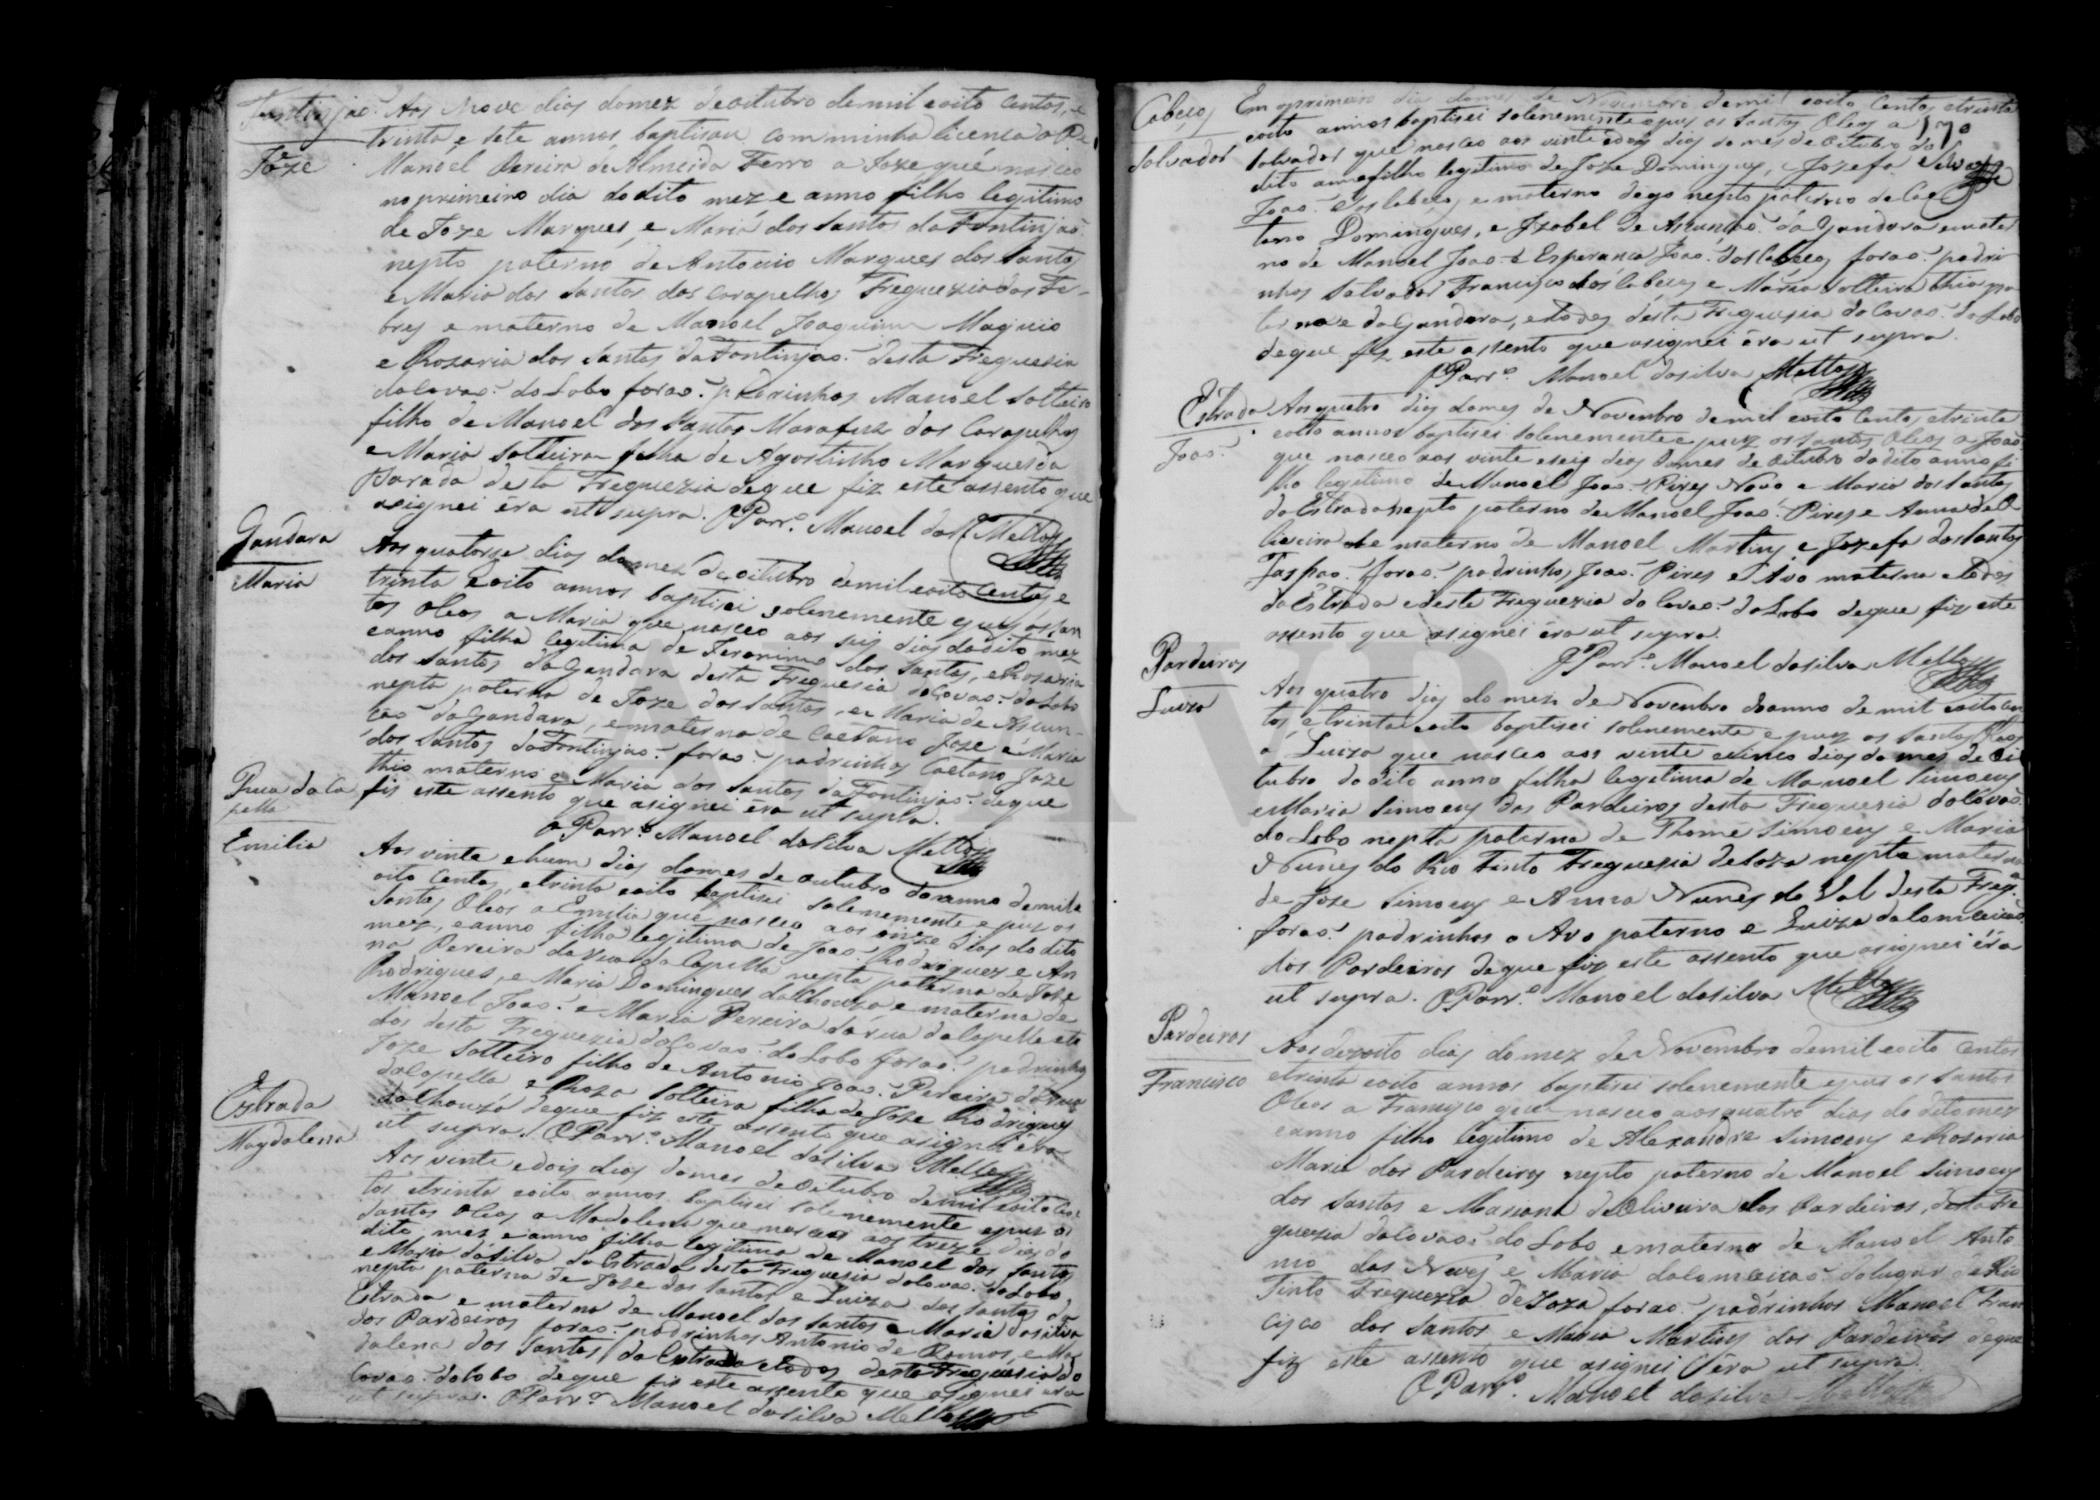 Fontinjao.
Joze
Aos Nove dias do mez de oitubro de mil eoito centos, e
trinta e sete annos baptisou com minha licenca o Pe.
Manoel Pereira de Almeida Ferro a Joze que nasceo
no primeiro dia do dito mez e anno filho legitimo
de Joze Marques, e Maria dos Santos da Fontinjao.
nepto paterno de Antonio Marques dos Santos
e Maria dos Santos dos Carapelhos Freguezia das Fe-
bres e materno de Manoel Joaquim Magnio
e Rozaria dos Santos da Fontinjao. desta Freguesia
da Covao. do Lobo forao. padrinhos Manoel Solteiro
filho de Manoel dos Santos Marafuz dos Carapelhos
e Maria Solteira filha de Agostinho Marques da
Barada desta Freguezia de que fiz este assento que
asignei éra ut supra. O Parr.o Manoel da S.a Mello
Gandara
Maria
Aos quatorze dias do mez de oitubro de mil eoito Centos e
trinta eoito annos baptisei solenemente e pus os San
tos Oleos a Maria que nasceo aos seis dias do dito mez
e anno filha legitima de Jeronimo dos Santos, e Rosaria
dos Santos da Gandara desta Freguesia da Covao. do Lobo
nepta paterna de Joze dos Santos, e Maria de Asun-
cao. da Gandara, e materna de Caetano Joze e Maria
dos Santos da Fontinjao. forao. padrinhos Caetano Joze
thio materno e Maria dos Santos da Fontinjao. de que
fis este assento que asignei éra ut supra.
O Parr.o Manoel da Silva Mello
Rua da Ca
pella
Emilia
Aos vinte e hum dias do mes de outubro do anno de mil e
oito Centos, e trinta eoito baptisei solenemente e pus os
Santos Oleos a Emilia que nasceo aos onze dias do dito
mez, e anno filha legitima de Joao. Rodriguez e An
na Pereira da rua da Capella nepta paterna de Joze
Rodrigues, e Maria Domingues da Chouza e materna de
Manoel Joao. e Maria Pereira da rua da Capella e to
dos desta Freguezia da Covao. do Lobo forao. padrinhos
Joze Solteiro filho de Antonio Joao. Pereira da Rua
da Capella e Roza Solteira filha de Joze Rodrigues
da Chouza de que fiz este assento que asignei éra
ut supra. O Parr.o Manoel da Silva Mello
Estrada
Magdalena
Aos vinte e dois dias do mes de oitubro de mil eoito Cen
tos e trinta eoito annos baptisei solenemente e pus os
Santos Oleos a Madalena que nasceo aos treze dias do
dito mez e anno filha legitima de Manoel dos Santos
e Maria da Silva da Estrada desta Freguesia da Covao. do Lobo
nepta paterna de Joze dos Santos e Luiza dos Santos da
Estrada e materna de Manoel dos Santos e Maria da Silva
dos Pardeiros forao. padrinhos Antonio de Ramos, e Ma
dalena dos Santos da Estrada e todos desta Freguesia da
Covao. do Lobo de que fis este assento que asignei éra
ut supra. O Parr.o Manoel da Silva Mello
170
Cabeços
Salvador
Em o primeiro dia do mes de Novembro de mil eoito Centos e trinta
eoito annos baptisei solenemente e pus os Santos Oleos a
Salvador que nasceo aos vinte e dois dias do mes de Oitubro do
dito anno filho legitimo de Joze Domingues, e Jozefa
Joao. dos Cabeços e materno digo nepto paterno de Cae
tano Domingues, e Izabel de Asuncao. da Gandara e mater
no de Manoel Joao. e Esperanca Joao. dos Cabecos forao. padri
nhos Salvador Francisco dos Cabecos e Maria Solteira thia pa
terna e da Gandara, e todos désta Freguesia da Covao. do Lobo
de que fiz este assento que asignei éra ut supra.
O Parr.o Manoel da Silva Mello
Estrada
Joao.
Aos quatro dias do mes de Novembro de mil eoito Centos e trinta
eoito annos baptisei solenemente e pus os Santos Oleos a Joao.
que nasceo aos vinte e seis dias do mes de oitubro do dito anno fi
lho legitimo de Manoel Joao. Pires Novo e Maria dos Santos
da Estrada nepto paterno de Manoel Joao. Pires e Anna de O
liveira e materno de Manoel Martins e Jozefa dos Santos
forao. padrinhos Joao. Pires e Avo materna e todos
da Estrada e deste Freguezia da Covao. do Lobo de que fiz este
assento que asignei éra ut supra.
O Parr.o Manoel da Silva Mello
Pardeiros
Luiza
Aos quatro dias do mes de Novembro do anno de mil eoito Cen
tos e trinta eoito baptisei solenemente e pus os Santos Oleos
a Luiza que nasceo aos vinte e cinco dias do mes de Oi
tubro do dito anno filha legitima de Manoel Simoens
e Maria Simoens dos Pardeiros desta Freguezia da Covao.
do Lobo nepta paterna de Thomé Simoens e Maria
Nunes do Rio Tinto Freguesia de Soza nepta materna
de Joze Simoens e Anna Nunes do Val desta Freg.a
forao. padrinhos o Avo paterno e Luiza da Conceicao.
dos Pardeiros de que fiz este assento que asignei éra
ut supra. O Parr.o Manoel da Silva Mello
Pardeiros
Francisco
Aos dezoito dias do mez de Novembro de mil eoito Centos
e trinta eoito annos baptisei solenemente e pus os Santos
Oleos a Francisco que nasceo aos quatro dias do dito mez
e anno filho legitimo de Alexandre Simoens e Rosaria
Maria dos Pardeiros nepto paterno de Manoel Simoens
dos Santos e Mariana d'Oliveira dos Pardeiros, desta Fre
guezia da Covao. do Lobo e materno de Manoel Anto
nio das Neves e Maria da Conceicao. do lugar de Rio
Tinto Freguezia de Soza forao. padrinhos Manoel Fran
cisco dos Santos e Maria Martins dos Pardeiros de que
fiz este assento que asignei éra ut supra.
O Parr.o Manoel da Silva Mello